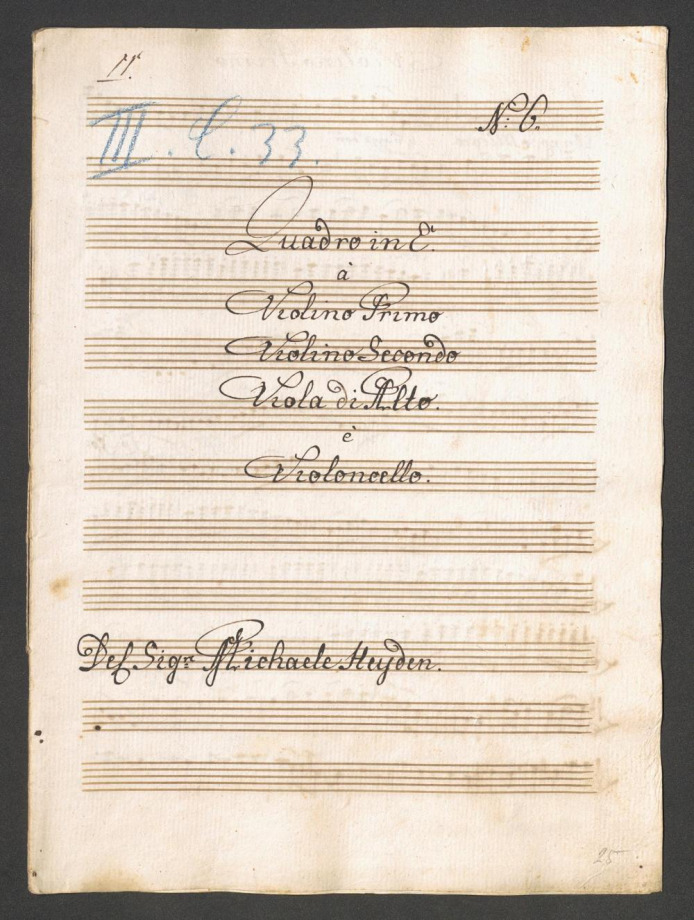 11.
N: 6.
III. C. 33.
Quadro in C.
à
Violino Primo
Violino Secondo
Viola di Alto.
è
Violoncello.
Del Sigr Michaele Heyden.
25